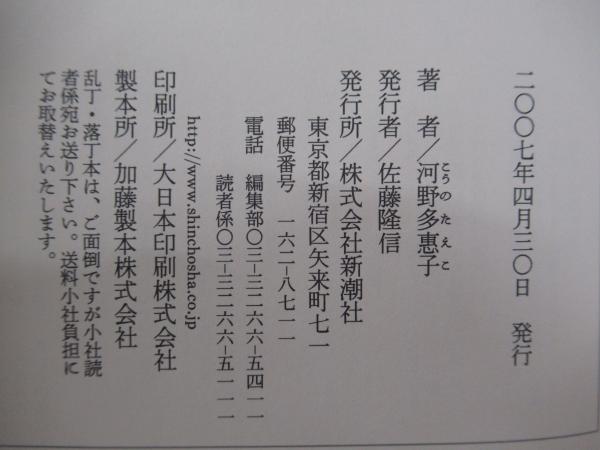 二〇〇七年四月三〇日　発行
著　者／河野多惠子
こうのたえこ
発行者／佐藤隆信
発行所／株式会社新潮社
東京都新宿区矢来町七一
郵便番号　一六二−八七一一
電話　編集部〇三−三二六六−五四一一
読者係〇三−三二六六−五一一一
http://www.shinchosha.co.jp
印刷所／大日本印刷株式会社
製本所／加藤製本株式会社
乱丁・落丁本は、ご面倒ですが小社読
者係宛お送り下さい。送料小社負担に
てお取替えいたします。